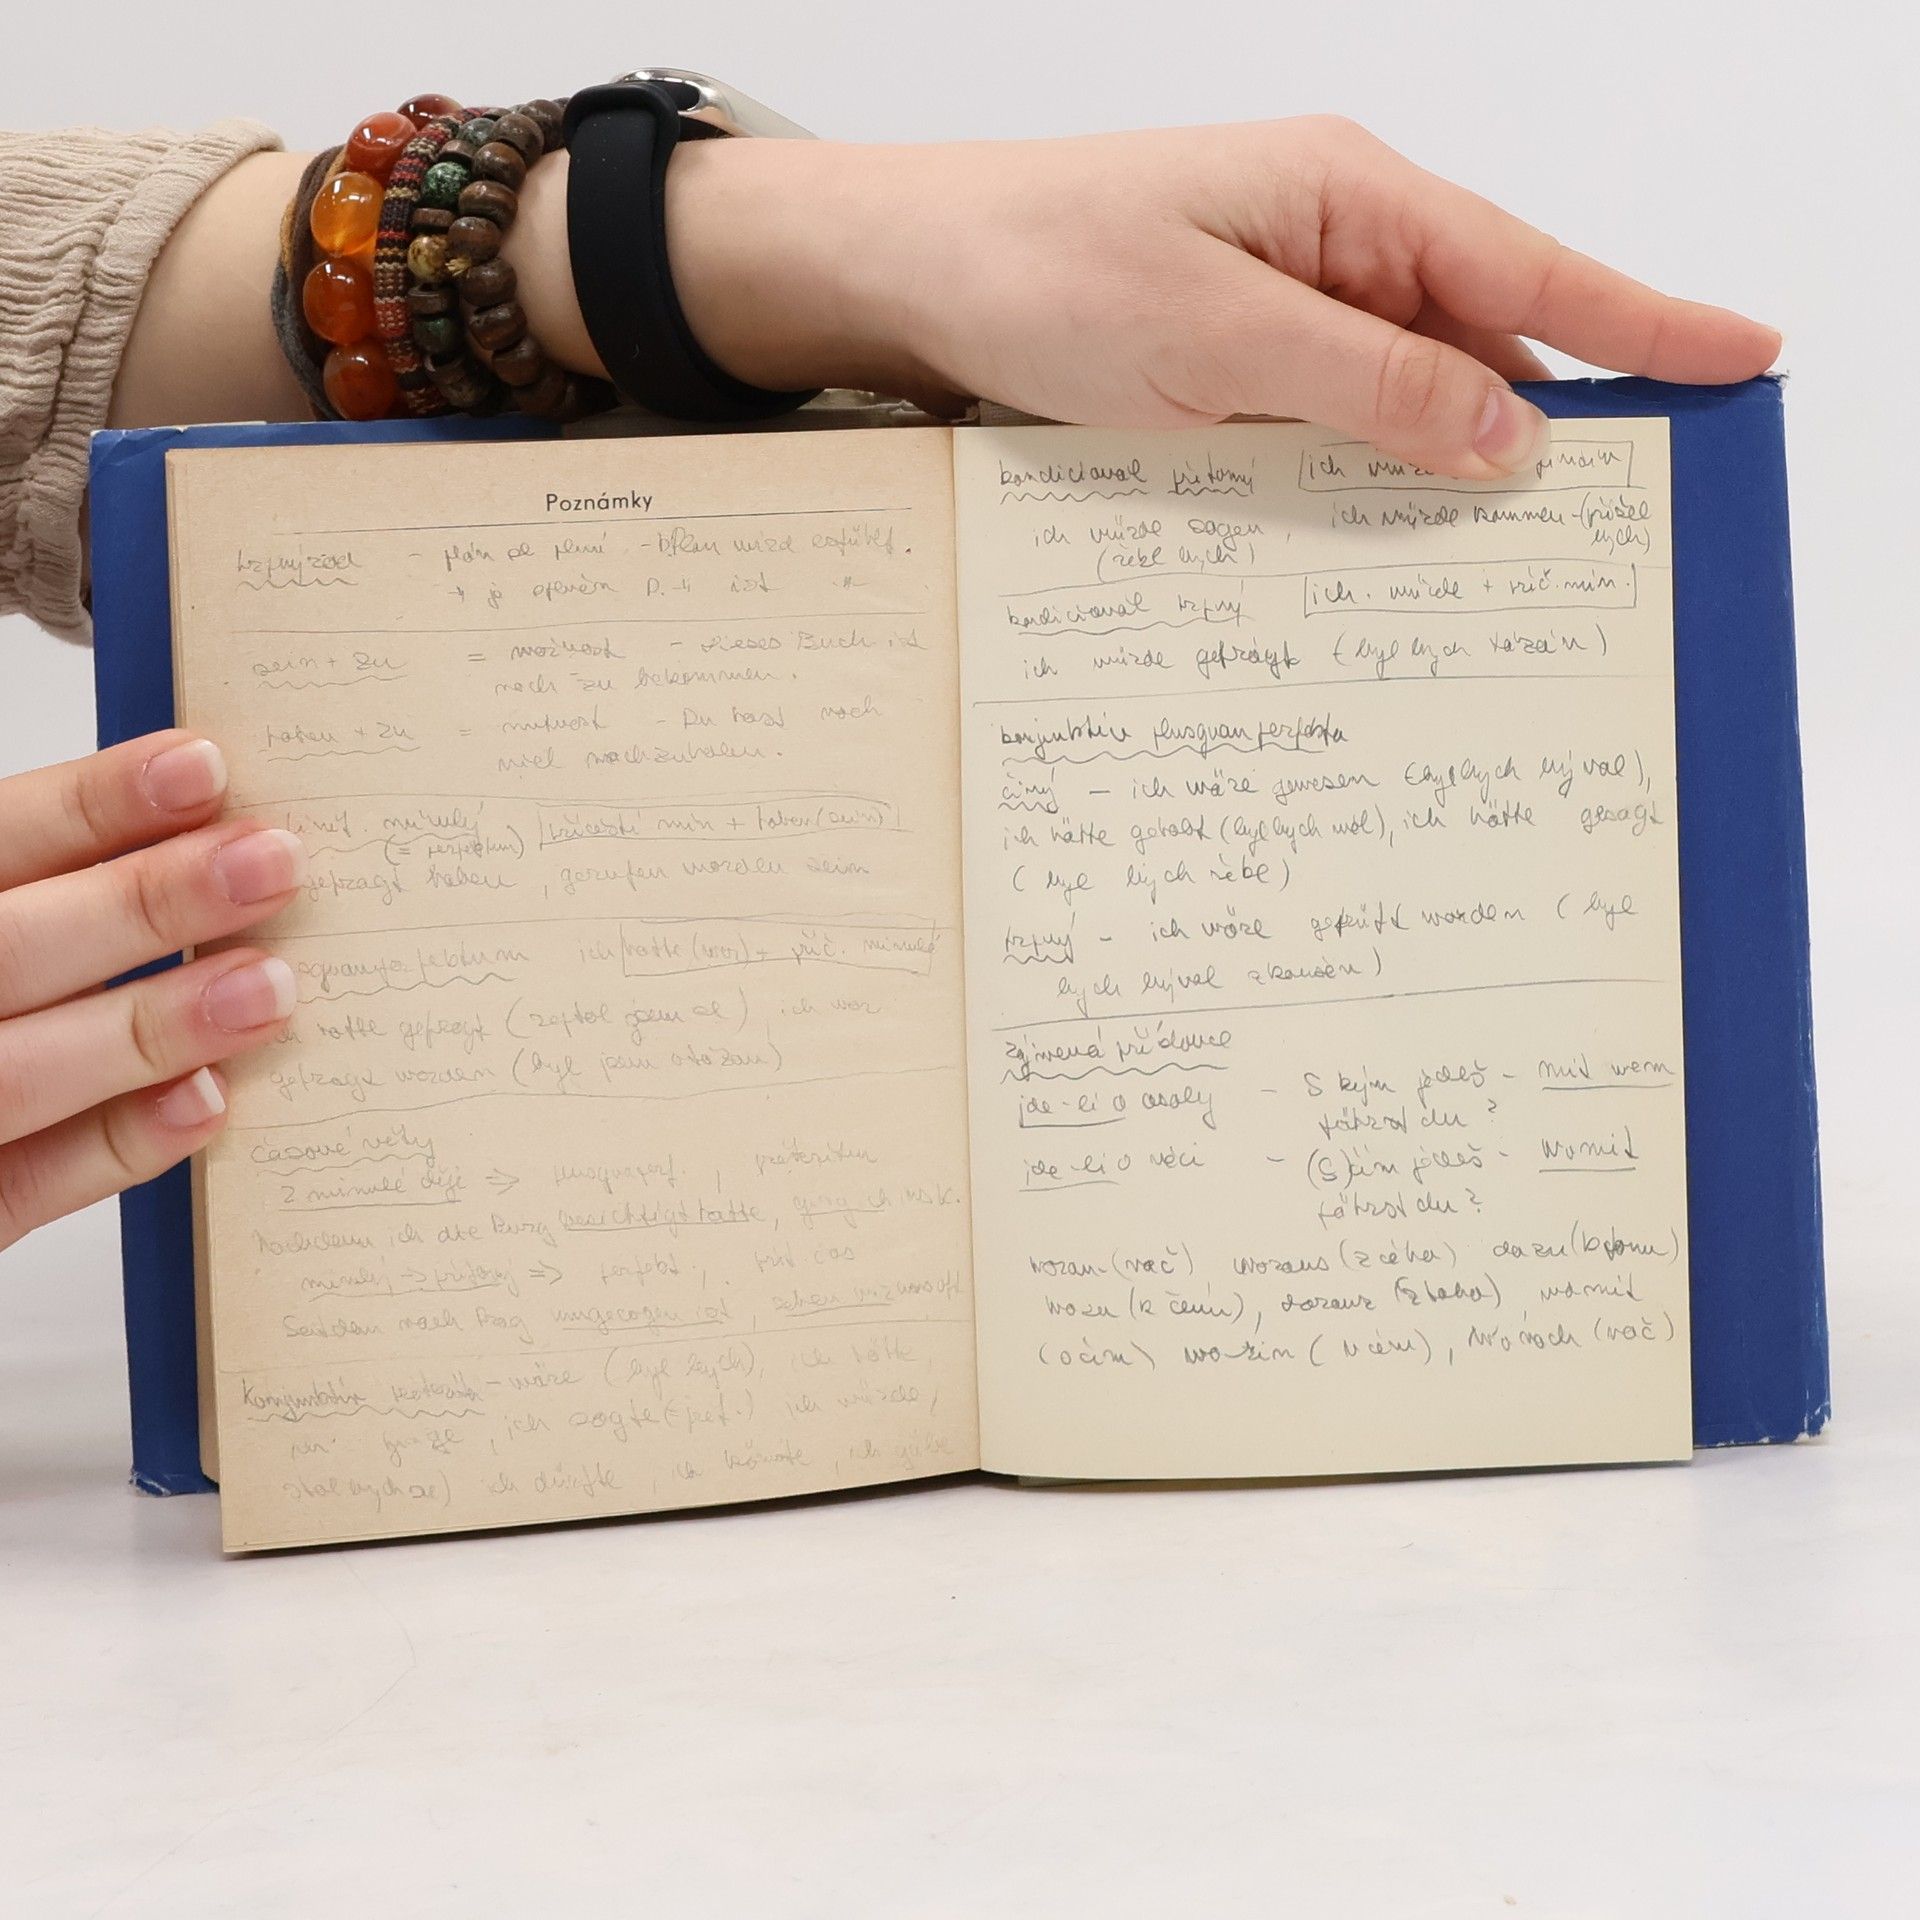 Poznámky
trpný rod - plán se plní - Plan wird erfüllt.
je splněn P. ist
sein + zu = možnost - Dieses Buch ist
noch zu bekommen.
haben + zu = nutnost - Du hast noch
viel nachzuholen.
minulý příčestí min + haben (sein)
(= perfektum)
gefragt haben, gerufen worden sein
ich hatte (war) + příč. minulé
hatte gefragt (zeptal jsem se) ich war
gefragt worden (byl jsem otázán)
časové věty
2 minulé děje => plusquaperf., préteritum
Nachdem ich die Burg besichtigt hatte, ging ich ins K.
minulý -> přítomý => perfekt., přít čas
Seitdem nach Prag umgezogen ist,
Konjunktiv - wäre (byl bych), ich hätte
ich sagte (= pret.) ich würde,
ich dürfte, ich könnte, ich
kondicionál přítomý ich
ich würde sagen, ich würde kommen - (přišel
bych)
(řekl bych)
kondicionál trpný ich würde + příč. min.
ich würde gefragt (byl bych tázán)
konjunktiv plusquamperfekta
činý - ich wäre gewesen (byl bych býval),
ich hätte gehabt (byl bych měl), ich hätte gesagt
(byl bych řekl)
trpný - ich wäre geprüft worden (byl
bych býval zkoušen)
zájmená příslovce
jde-li o osoby - S kým jedeš - mit wem
fährst du?
jde-li o věci - (S)čím jedeš - womit
fährst du?
woran (nač), woraus (z čeho) dazu (k tomu)
wozu (k čemu), daraus (z toho), womit
(očím) worin (v čem), wonach (nač)